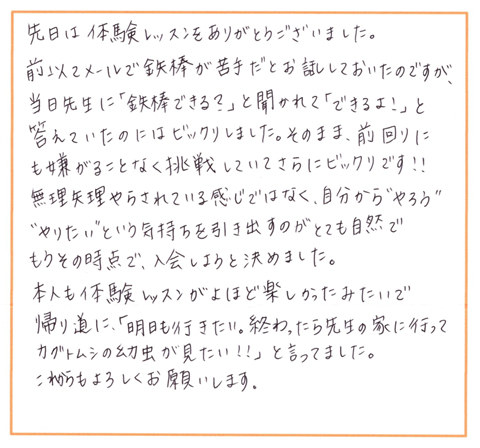 先日は体験レッスンをありがとうございました。
前以てメールで鉄棒が苦手だとお話ししておいたのですが、
当日先生に「鉄棒できる?」と聞かれて「できるよ!」と
答えていたのにはビックリしました。そのまま、前回りに
も嫌がることなく挑戦していてさらにビックリです!!
無理矢理やらされている感じではなく、自分から"やろう"
"やりたい"という気持ちを引き出すのがとても自然で
もうその時点で、入会しようと決めました。
本人も体験レッスンがよほど楽しかったみたいで
帰り道に、「明日も行きたい。終わったら先生の家に行って
カブトムシの幼虫が見たい!!」と言ってました。
これからもよろしくお願いします。